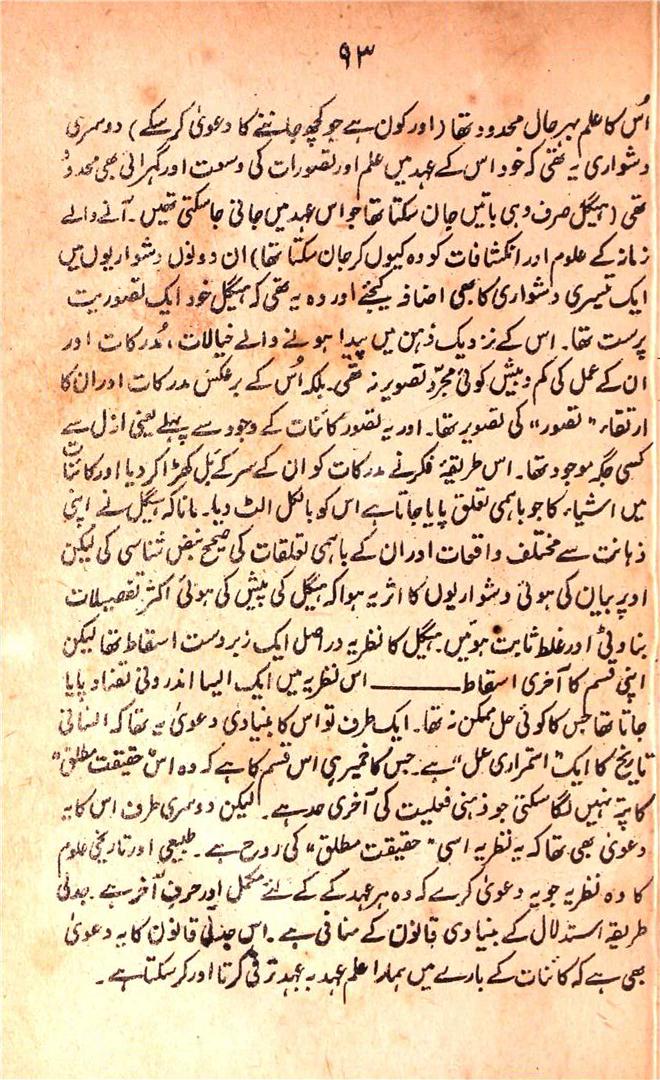 ۹۳
اُس کا علم بہرحال محدود تھا (اور کون ہے جو کچھ جاننے کا دعویٰ کر سکے) دوسری
دشواری یہ تھی کہ خود اس کے عہد میں علم اور تصورات کی وسعت اور گہرائی بھی محدود
تھی (ہیگل صرف وہی باتیں جان سکتا تھا جو اس عہد میں جانی جا سکتی تھیں۔ آنے والے
زمانہ کے علوم اور انکشافات کو وہ کیوں کر جان سکتا تھا) ان دونوں دشواریوں میں
ایک تیسری دشواری کا بھی اضافہ کیجئے اور وہ یہ تھی کہ ہیگل خود ایک تصوریت
پرست تھا۔ اس کے نزدیک ذہن میں پیدا ہونے والے خیالات، مُدرکات اور
ان کے عمل کی کم و بیش کوئی مجرّد تصویر نہ تھی۔ بلکہ اُس کے برعکس مدرکات اور ان کا
ارتقاء "تصور" کی تصویر تھا۔ اور یہ تصور کائنات کے وجود سے پہلے یعنی ازل سے
کسی جگہ موجود تھا۔ اس طریقۂ فکر نے مدرکات کو ان کے سر کے بَل کھڑا کر دیا اور کائنات
میں اشیاء کا جو باہمی تعلق پایا جاتا ہے اس کو بالکل الٹ دیا۔ مانا کہ ہیگل نے اپنی
ذہانت سے مختلف واقعات اور ان کے باہمی تعلقات کی صحیح نبض شناسی کی لیکن
اوپر بیان کی ہوئی دشواریوں کا اثر یہ ہوا کہ ہیگل کی پیش کی ہوئی اکثر تفصیلات
بناوٹی اور غلط ثابت ہوئیں۔ ہیگل کا نظریہ در اصل ایک زبردست اسقاط تھا لیکن
اپنی قسم کا آخری اسقاط ـــــــــ اس نظریہ میں ایک ایسا اندرونی تضاد پایا
جاتا تھا جس کا کوئی حل ممکن نہ تھا۔ ایک طرف تو اس کا بنیادی دعویٰ یہ تھا کہ انسانی
تاریخ کا ایک "استمراری عمل" ہے۔ جس کا خمیر ہی اس قسم کا ہے کہ وہ اس "حقیقت مطلق"
کا پتہ نہیں لگا سکتی جو ذہنی فعلیت کی آخری حد ہے۔ لیکن دوسری طرف اس کا یہ
دعویٰ بھی تھا کہ یہ نظریہ اسی "حقیقت مطلق" کی روح ہے۔ طبیعی اور تاریخی علوم
کا وہ نظریہ جو یہ دعویٰ کرے کہ وہ ہر عہد کے کے لئے مکمل اور حرفِ آخر ہے۔ جدلی
طریقۂ استدلال کے بنیادی قانون کے منافی ہے۔ اس جدلی قانون کا یہ دعویٰ
بھی ہے کہ کائنات کے بارے میں ہمارا علم عہد بہ عہد ترقی کرتا اور کر سکتا ہے۔